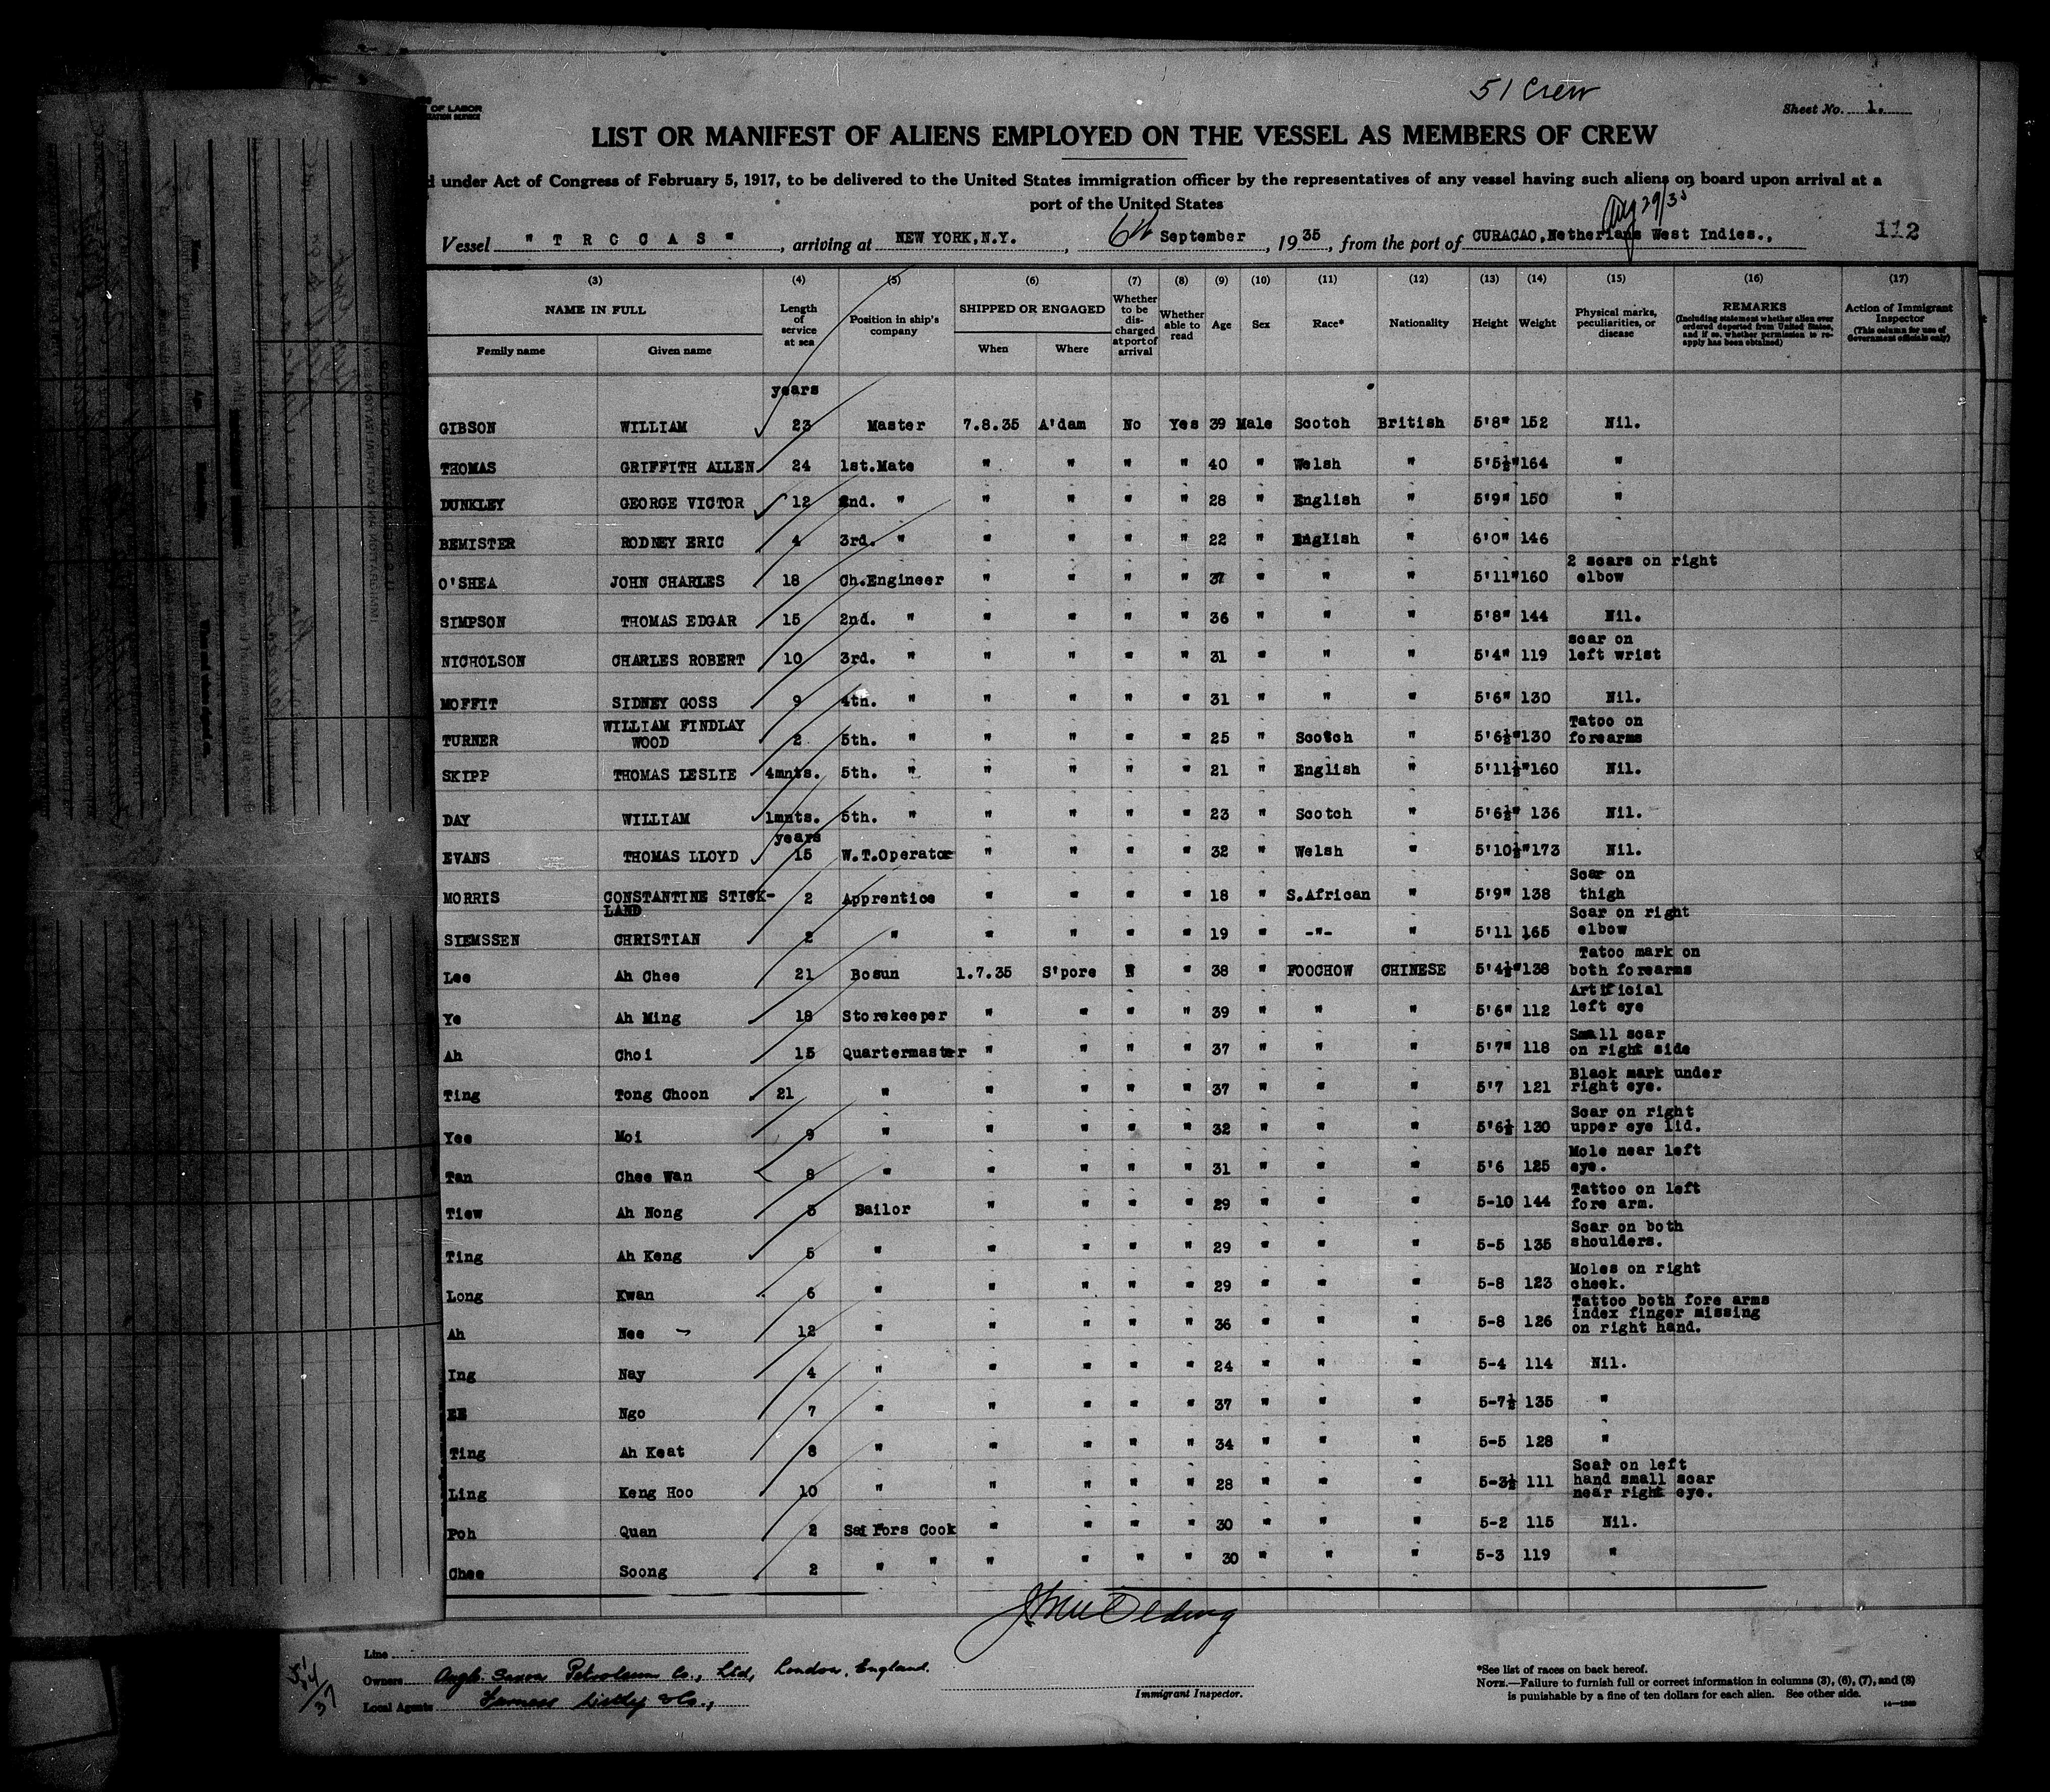 51 Crew
OF LABOR
Sheet No. 1.
LIST OR MANIFEST OF ALIENS EMPLOYED ON THE VESSEL AS MEMBERS OF CREW
under Act of Congress of February 5, 1917, to be delivered to the United States immigration officer by the representatives of any vessel having such aliens on board upon arrival at a
port of the United States
Aug 29/35
Vessel "TROCAS", arriving at NEW YORK,N.Y., 6th September, 1935, from the port of CURACAO,Netherlans West Indies., 112
(3) (4) (5) (6) (7) (8) (9) (10) (11) (12) (13) (14) (15) (16) (17)
NAME IN FULL Length of service at sea Position in ship's company SHIPPED OR ENGAGED Whether to be discharged at port of arrival Whether able to read Age Sex Race* Nationality Height Weight Physical marks, peculiarities, or disease REMARKS (Including statement whether alien ever ordered deported from United States, and if so, whether permission to reapply has been obtained) Action of Immigrant Inspector (This column for use of Government officials only)
Family name Given name When Where
years
GIBSON WILLIAM 23 Master 7.8.35 A'dam No Yes 39 Male Scotch British 5'8" 152 Nil.
THOMAS GRIFFITH ALLEN 24 1st.Mate " " " " 40 " Welsh " 5'5½" 164 "
DUNKLEY GEORGE VICTOR 12 2nd. " " " " " 28 " English " 5'9" 150 "
BEMISTER RODNEY ERIC 4 3rd. " " " " " 22 " English " 6'0" 146
O'SHEA JOHN CHARLES 18 Ch.Engineer " " " " 37 " " " 5'11" 160 2 scars on right elbow
SIMPSON THOMAS EDGAR 15 2nd. " " " " " 36 " " " 5'8" 144 Nil.
NICHOLSON CHARLES ROBERT 10 3rd. " " " " " 31 " " " 5'4" 119 scar on left wrist
MOFFIT SIDNEY GOSS 9 4th. " " " " " 31 " " " 5'6" 130 Nil.
TURNER WILLIAM FINDLAY WOOD 2 5th. " " " " " 25 " Scotch " 5'6½" 130 Tatoo on forearms
SKIPP THOMAS LESLIE 4mnts. 5th. " " " " " 21 " English " 5'11½" 160 Nil.
DAY WILLIAM 1mnts. 5th. " " " " " 23 " Scotch " 5'6½" 136 Nil.
years
EVANS THOMAS LLOYD 15 W.T.Operator " " " " 32 " Welsh " 5'10½" 173 Nil.
MORRIS CONSTANTINE STICK-LAND 2 Apprentice " " " " 18 " S.African " 5'9" 138 Scar on thigh
SIEMSSEN CHRISTIAN 2 " " " " " 19 " -"- " 5'11 165 Scar on right elbow
Lee Ah Chee 21 Bosun 1.7.35 S'pore " " 38 " FOOCHOW CHINESE 5'4½" 138 Tatoo mark on both forearms
Ye Ah Ming 18 Storekeeper " " " " 39 " " " 5'6" 112 Artificial left eye
Ah Choi 15 Quartermaster " " " " 37 " " " 5'7" 118 Small scar on right side
Ting Tong Choon 21 " " " " " 37 " " " 5'7 121 Black mark under right eye.
Yee Moi 9 " " " " " 32 " " " 5'6½ 130 Scar on right upper eye lid.
Tan Chee Wan 8 " " " " " 31 " " " 5'6 125 Mole near left eye.
Tiew Ah Nong 5 Sailor " " " " 29 " " " 5-10 144 Tattoo on left fore arm.
Ting Ah Keng 5 " " " " " 29 " " " 5-5 135 Scar on both shoulders.
Long Kwan 6 " " " " " 29 " " " 5-8 123 Moles on right cheek.
Ah Nee 12 " " " " " 36 " " " 5-8 126 Tattoo both fore arms index finger missing on right hand.
Ing Nay 4 " " " " " 24 " " " 5-4 114 Nil.
EE Ngo 7 " " " " " 37 " " " 5-7½ 135 "
Ting Ah Keat 8 " " " " " 34 " " " 5-5 128 "
Ling Keng Hoo 10 " " " " " 28 " " " 5-3½ 111 Scar on left hand small scar near right eye.
Poh Quan 2 Sailors Cook " " " " 30 " " " 5-2 115 Nil.
Chee Soong 2 " " " " " " 30 " " " 5-3 119 "
Line
Owners Anglo Saxon Petroleum Co., Ltd, London, England.
Local Agents Furness Withy & Co.,
Immigrant Inspector.
*See list of races on back hereof.
NOTE.—Failure to furnish full or correct information in columns (3), (6), (7), and (8)
is punishable by a fine of ten dollars for each alien. See other side.